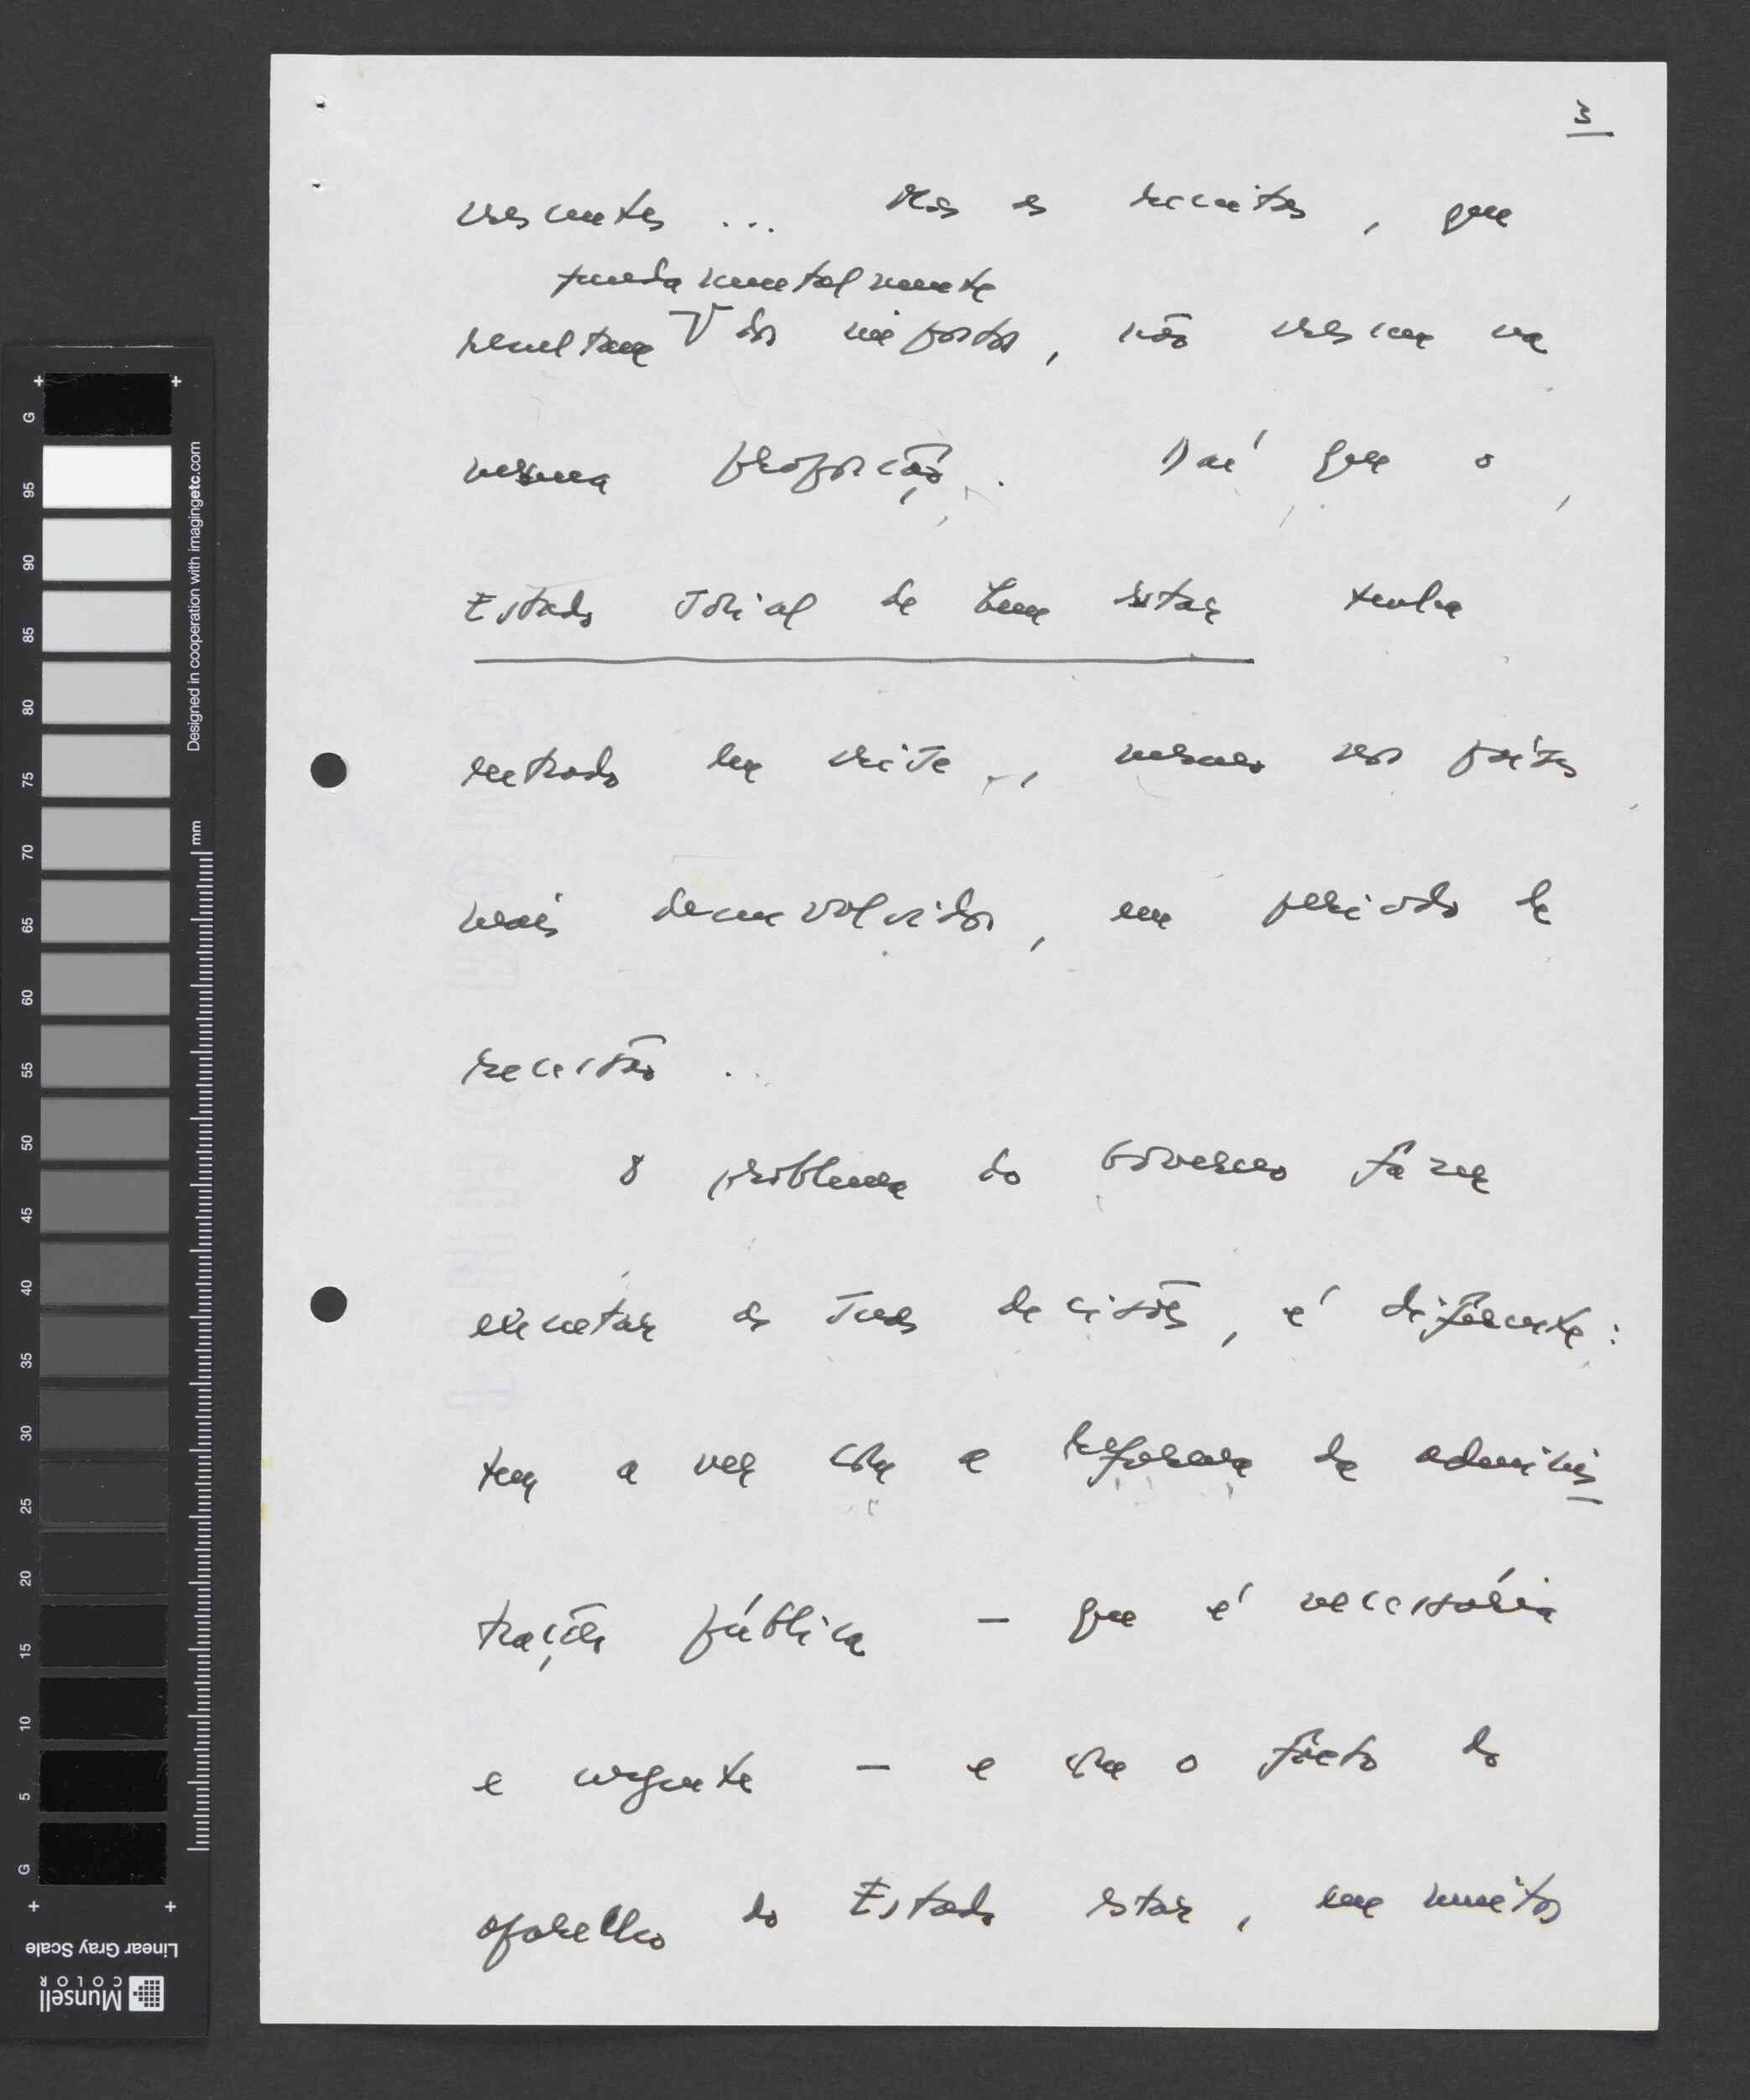 3
crescentes ... Mas as receitas, que
fundamentalmente
resultam dos impostos, não crescem na
mesma proporção. Daí que o
Estado Social de bem estar tenha
entrado em crise, mesmo nos países
mais desenvolvidos, em período de
recessão..
O problema do Governo fazer
executar as suas decisões, é diferente:
tem a ver com a reforma da adminis
tração pública – que é necessária
e urgente – e com o facto do
aparelho do Estado estar, em muitos
G
95
90
85
80
75
70
65
60
55
50
45
40
35
30
25
20
15
10
5
G
mm
Designed in cooperation with imagingetc.com
Linear Gray Scale
Munsell
COLOR